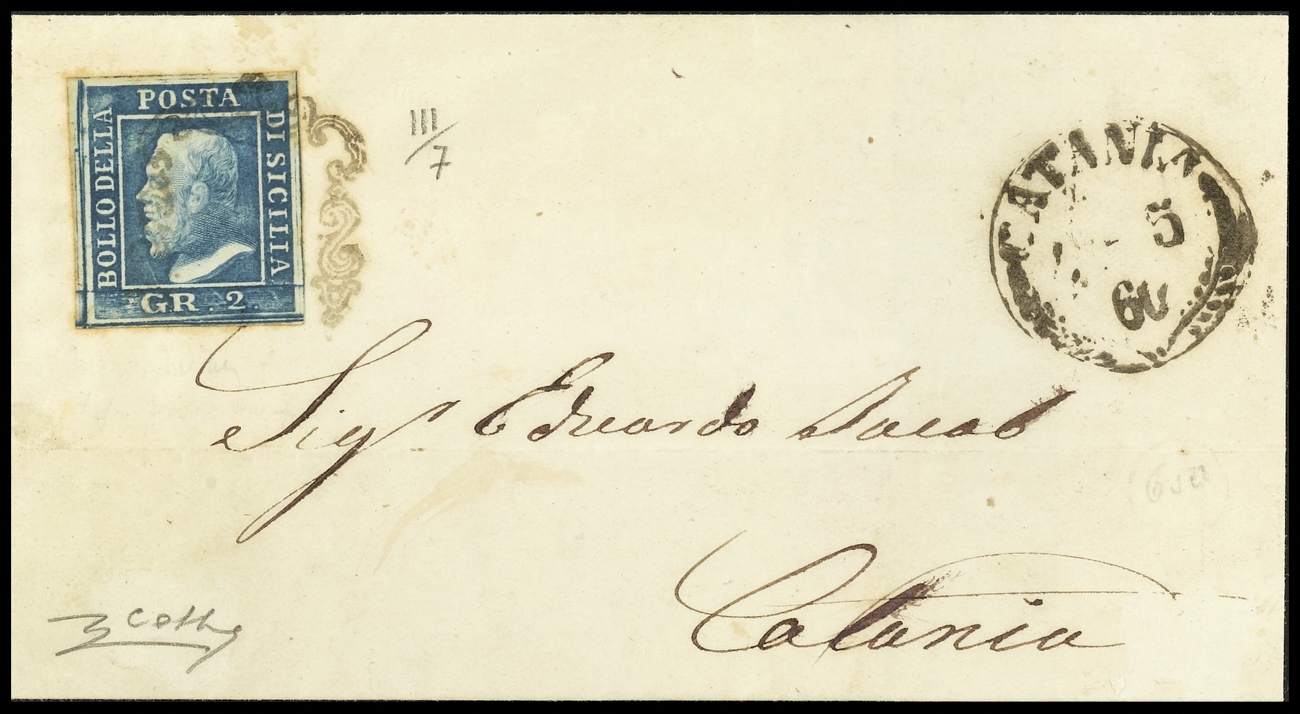 POSTA
BOLLO DELLA
DI SICILIA
GR. 2.
III/7
CATANIA
5
60
Sigr Eduardo Jacob
Catania